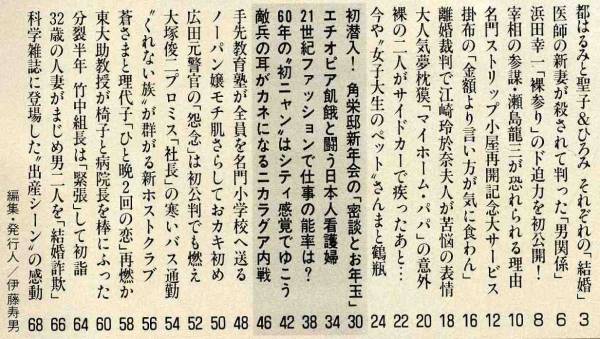 都はるみと聖子&ひろみ それぞれの「結婚」 3
医師の新妻が殺されて判った「男関係」 6
浜田幸一「裸参り」のド迫力を初公開! 8
宰相の参謀・瀬島龍三が恐れられる理由 10
名門ストリップ小屋再開記念大サービス 12
掛布の「金額より言い方が気に食わん」 16
離婚裁判で江崎玲於奈夫人が苦悩の表情 18
大人気夢枕獏「マイホーム・パパ」の意外 20
裸の二人がサイドカーで疾ったあと… 22
今や“女子大生のペット”さんまと鶴瓶 24
初潜入! 角栄邸新年会の「密談とお年玉」 30
エチオピア飢餓と闘う日本人看護婦 34
21世紀ファッションで仕事の能率は? 38
60年の“初ニャン”はシティ感覚でゆこう 42
敵兵の耳がカネになるニカラグア内戦 46
手先教育塾が全員を名門小学校へ送る 48
ノーパン嬢モチ肌さらしておカキ初め 50
広田元警官の「怨念」は初公判でも燃え 52
大塚俊二プロミス「社長」の寒いバス通勤 54
“くれない族”が群がる新ホストクラブ 56
蒼さまと理代子「ひと晩2回の恋」再燃か 58
東大助教授が椅子と病院長を棒にふった 60
分裂半年 竹中組長は「緊張」して初詣 64
32歳の人妻がまじめ男二人を「結婚詐欺」 66
科学雑誌に登場した“出産シーン”の感動 68
編集・発行人/伊藤寿男